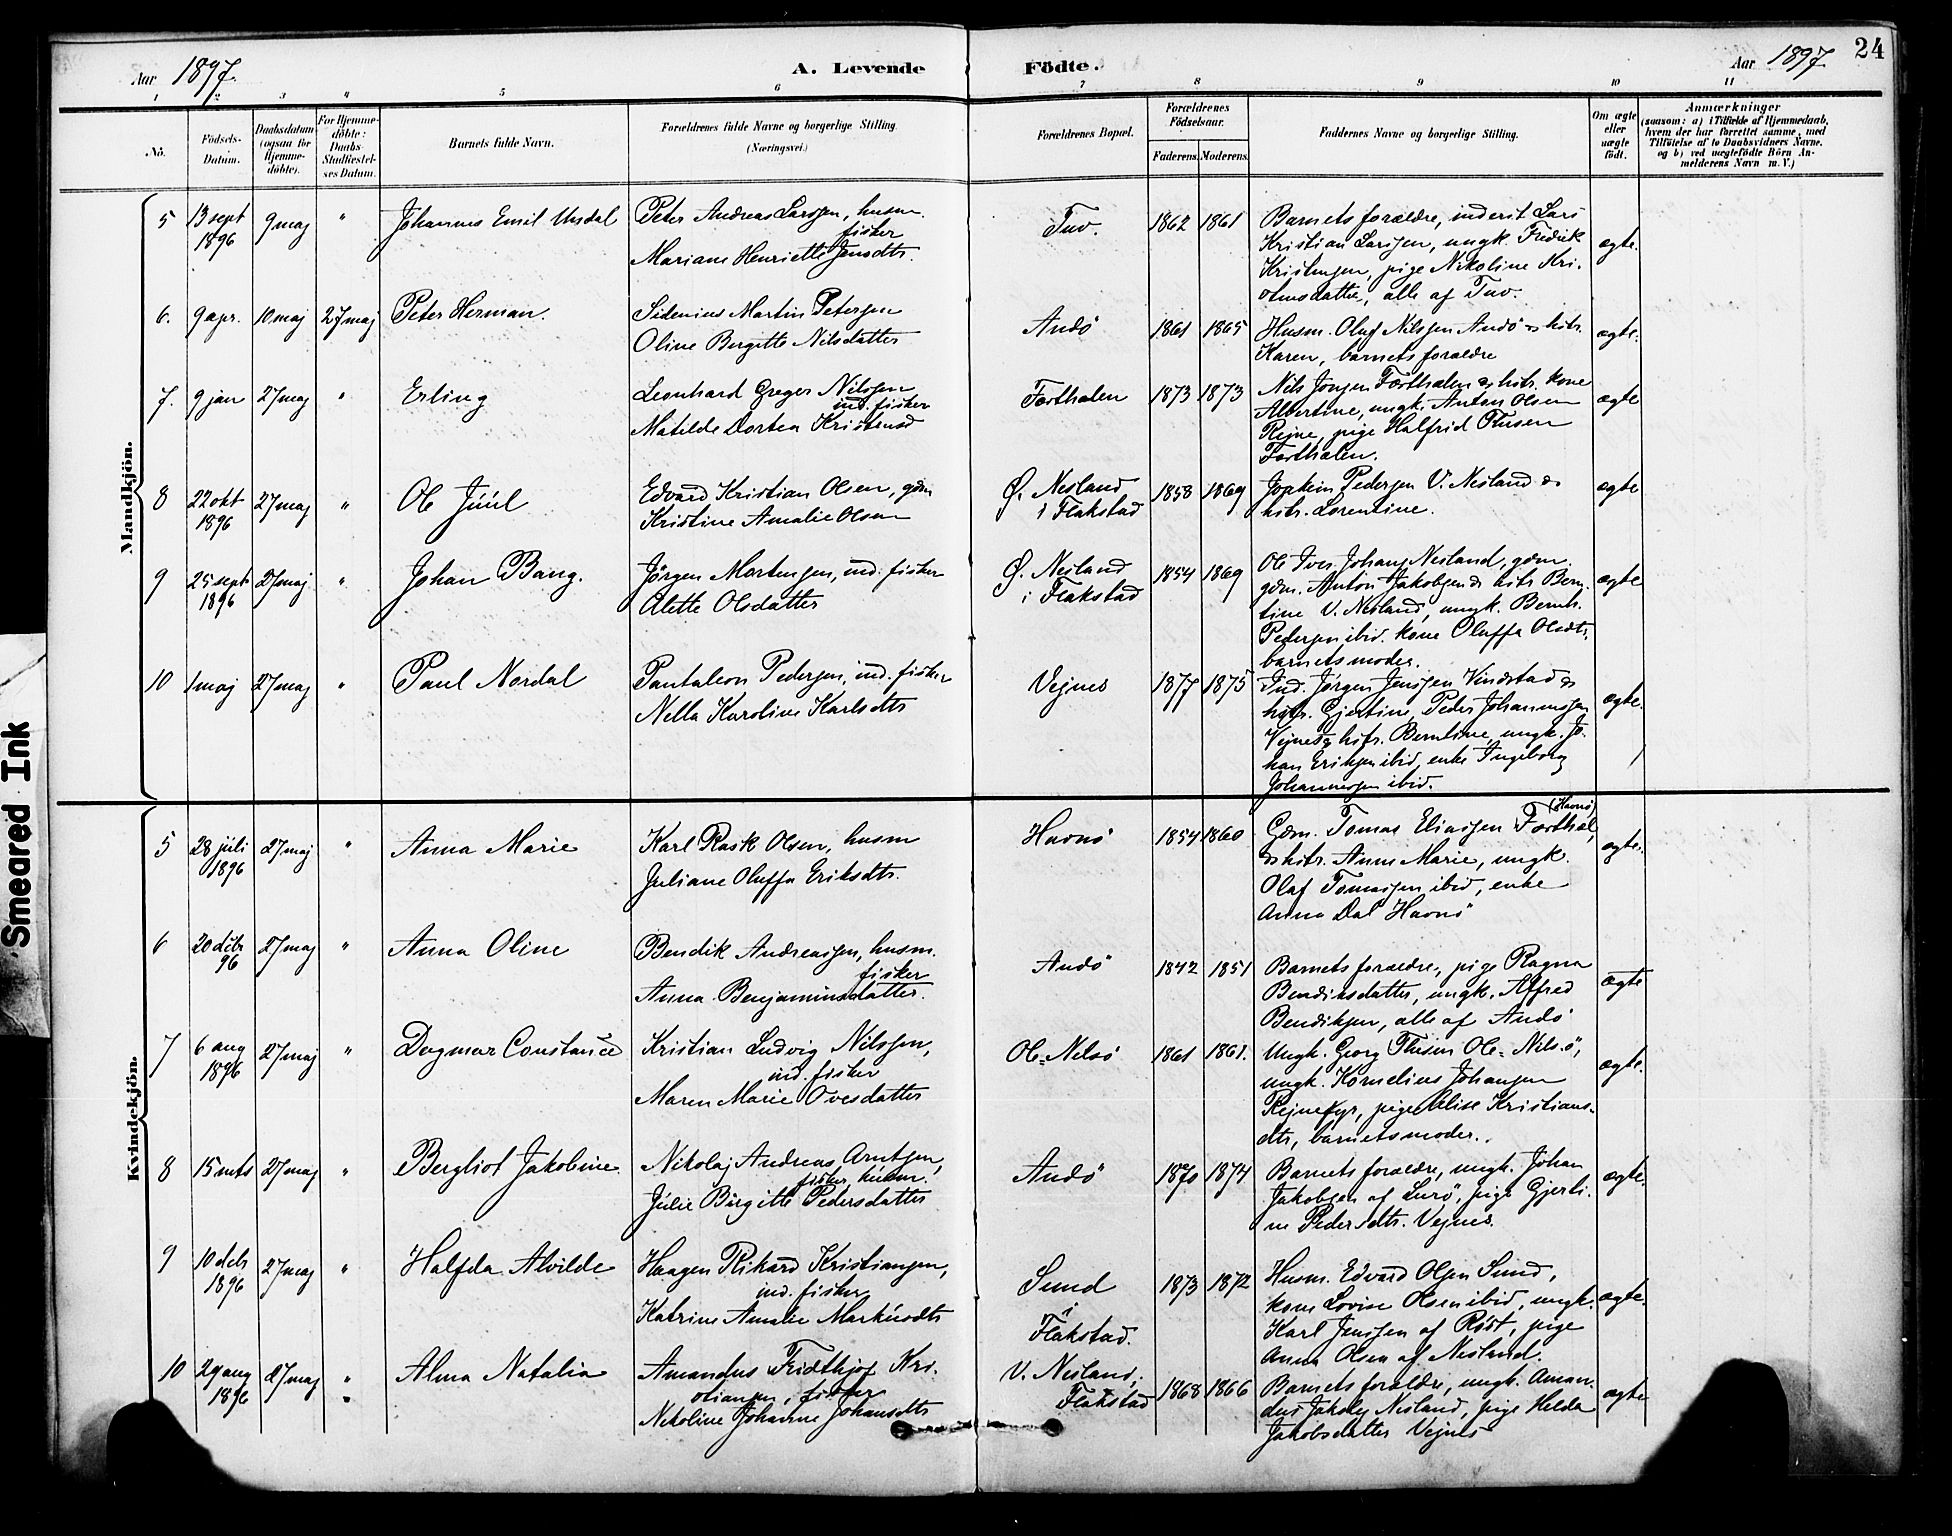 24
Aar 1897.
A. Levende Födte.
Aar 1897
1 2 3 4 5 6 7 8 9 10 11
No.
Födsels-
Datum.
Daabsdatum
(ogsaa for
Hjemme-
döbte).
For Hjemme-
döbte:
Daabs-
Stadfæstel-
ses Datum.
Barnets fulde Navn.
Forældrenes fulde Navne og borgerlige Stilling.
(Næringsvei.)
Forældrenes Bopæl.
Forældrenes
Födselsaar.
Faderens.
Moderens.
Faddernes Navne og borgerlige Stilling.
Om ægte
eller
uægte
födt.
Anmærkninger
(saasom: a) i Tilfælde af Hjemmedaab,
hvem der har forrettet samme, med
Tilföielse af to Daabsvidners Navne,
og b) ved uægtefödte Börn An-
melderens Navn m. V.)
Mandkjön.
5 13 sept 1896 9 maj " Johannes Emil
Peter Andreas Larssen, husm.
fisker
Mariane Henriette Jensdtr.
Tuv. 1862 1861
Barnets forældre, inderst Lars
Kristian Larssen, ungk. Fredrik
Kristensen, pige Nikoline Kri-
stensdatter, alle af Tuv.
ægte.
6. 9 apr. 10. maj 27 maj Peter Herman.
Sidenius Martin Petersen
Oline Bergitte Nilsdatter
Andö 1861 1865
Husm. Oluf Nilssen Andö & hstr.
Karen, barnets forældre
ægte.
7. 9 jan 27 maj " Erling
Leonhard Greger Nilssen
ind. fisker
Matilde Dortea Kristensd
Forthalen 1873 1873
Nils Jonsen Forthalen & hstr. kone
Albertine, ungk. Anton Olsen
Rejne, pige Halfrid
Forthalen.
ægte
8 22 okt 1896 27 maj " Ole Júúl
Edvard Kristian Olsen, gdm
Kristine Amalie Olsen
Ø. Nesland
i Flakstad
1858 1869
Joakim Pedersen V. Nesland &
hstr. Lorentine.
ægte
9 25 sept 1896 27 maj " Johan Bang.
Jörgen Mortensen, ind. fisker
Alette Olsdatter
Ø. Nesland
i Flakstad
1854 1869
Ole Iver Johans Nesland, gdm.
gdm. Anton Jakobsen & hstr Bern-
tine V. Nesland, ungk. Bernh.
Pedersen ibid. kone Oluffa Olsdtr.
barnets moder.
ægte
10 1 maj 27 maj " Paul Nordal
Pantaleon Pedersen, ind. fisker
Nella Karoline Karlsdtr
Vejnes 1877 1875
Ind. Jørgen Jenssen Vindstad &
hstr. Gjertine, Peder Johannessen
Vejnes & hstr. Berntine, ungk. Jo-
han Eriksen ibid, enke Ingeborg
Johannessen ibid.
ægte.
Kvindekjön.
5 28 juli 1896 27 maj " Anna Marie
Karl Rask Olsen, husm
Juliane Oluffa Eriksdtr.
Havnö 1854 1860
(Havnö)
Gdm. Tomas Eliassen Forthal,
& hstr. Anne Marie, ungk.
Olaf Tomassen ibid, enke
Anna Dal Havnö
ægte.
6 20 dcbr 96 27 maj " Anna Oline
Bendik Andreassen, husm.
fisker
Anna Benjaminsdatter.
Andö 1842 1851
Barnets forældre, pige Ragna
Bendiksdatter, ungk. Alfred
Bendiksen, alle af Andö
ægte
7 6 aug 1896 27 maj " Dagmar Constance
Kristian Ludvig Nilssen,
ind. fisker
Maren Marie Ovesdatter
Ole-Nilsö 1861 1861.
Ungk. Georg Ole-Nils.ö,
ungk. Kornelius Johansen
Rejnefyr, pige Alise Kristians-
dtr, barnets moder.
ægte.
8 15 mts 27 maj " Bergliot Jakobine
Nikolaj Andreas Arntsen,
fisker, husm.
Júlie Birgitte Pedersdatter
Andö 1870 1874
Barnets forældre, ungk. Johan
Jakobsen af Lurö, pige Gjerti-
ne Pedersdtr. Vejnes.
ægte.
9 10 deb 1896 27 maj " Halfda Alvilde
Haagen Rikard Kristiansen,
ind. fisker
Katrine Amalie Markúsdtr
Sund
i
Flakstad.
1873 1872
Husm. Edvard Olsen Sund,
kone Lovise Olsen ibid, ungk.
Karl Jenssen af Röst, pige
Anna Olsen af Nesland.
ægte.
10 29 aug 1896 27 maj " Alma Natalia
Amandus Fridthjof Kri-
stiansen, i. fisker
Nikoline Johanne Johansdtr
V. Nesland,
Flakstad
1868 1866
Barnets forældre, ungk. Aman-
dus Jakobs Nesland, pige Helda
Jakobsdatter Vejnes
ægte
Smeared Ink